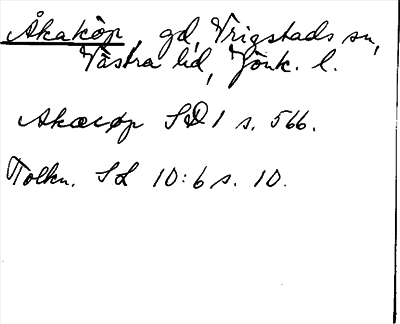 Åkaköp, gd, Vrigstads sn,
Västra hd, Jönk. l.
Akacøp SD 1 s. 566.
Tolkn. SL 10:6 s. 10.